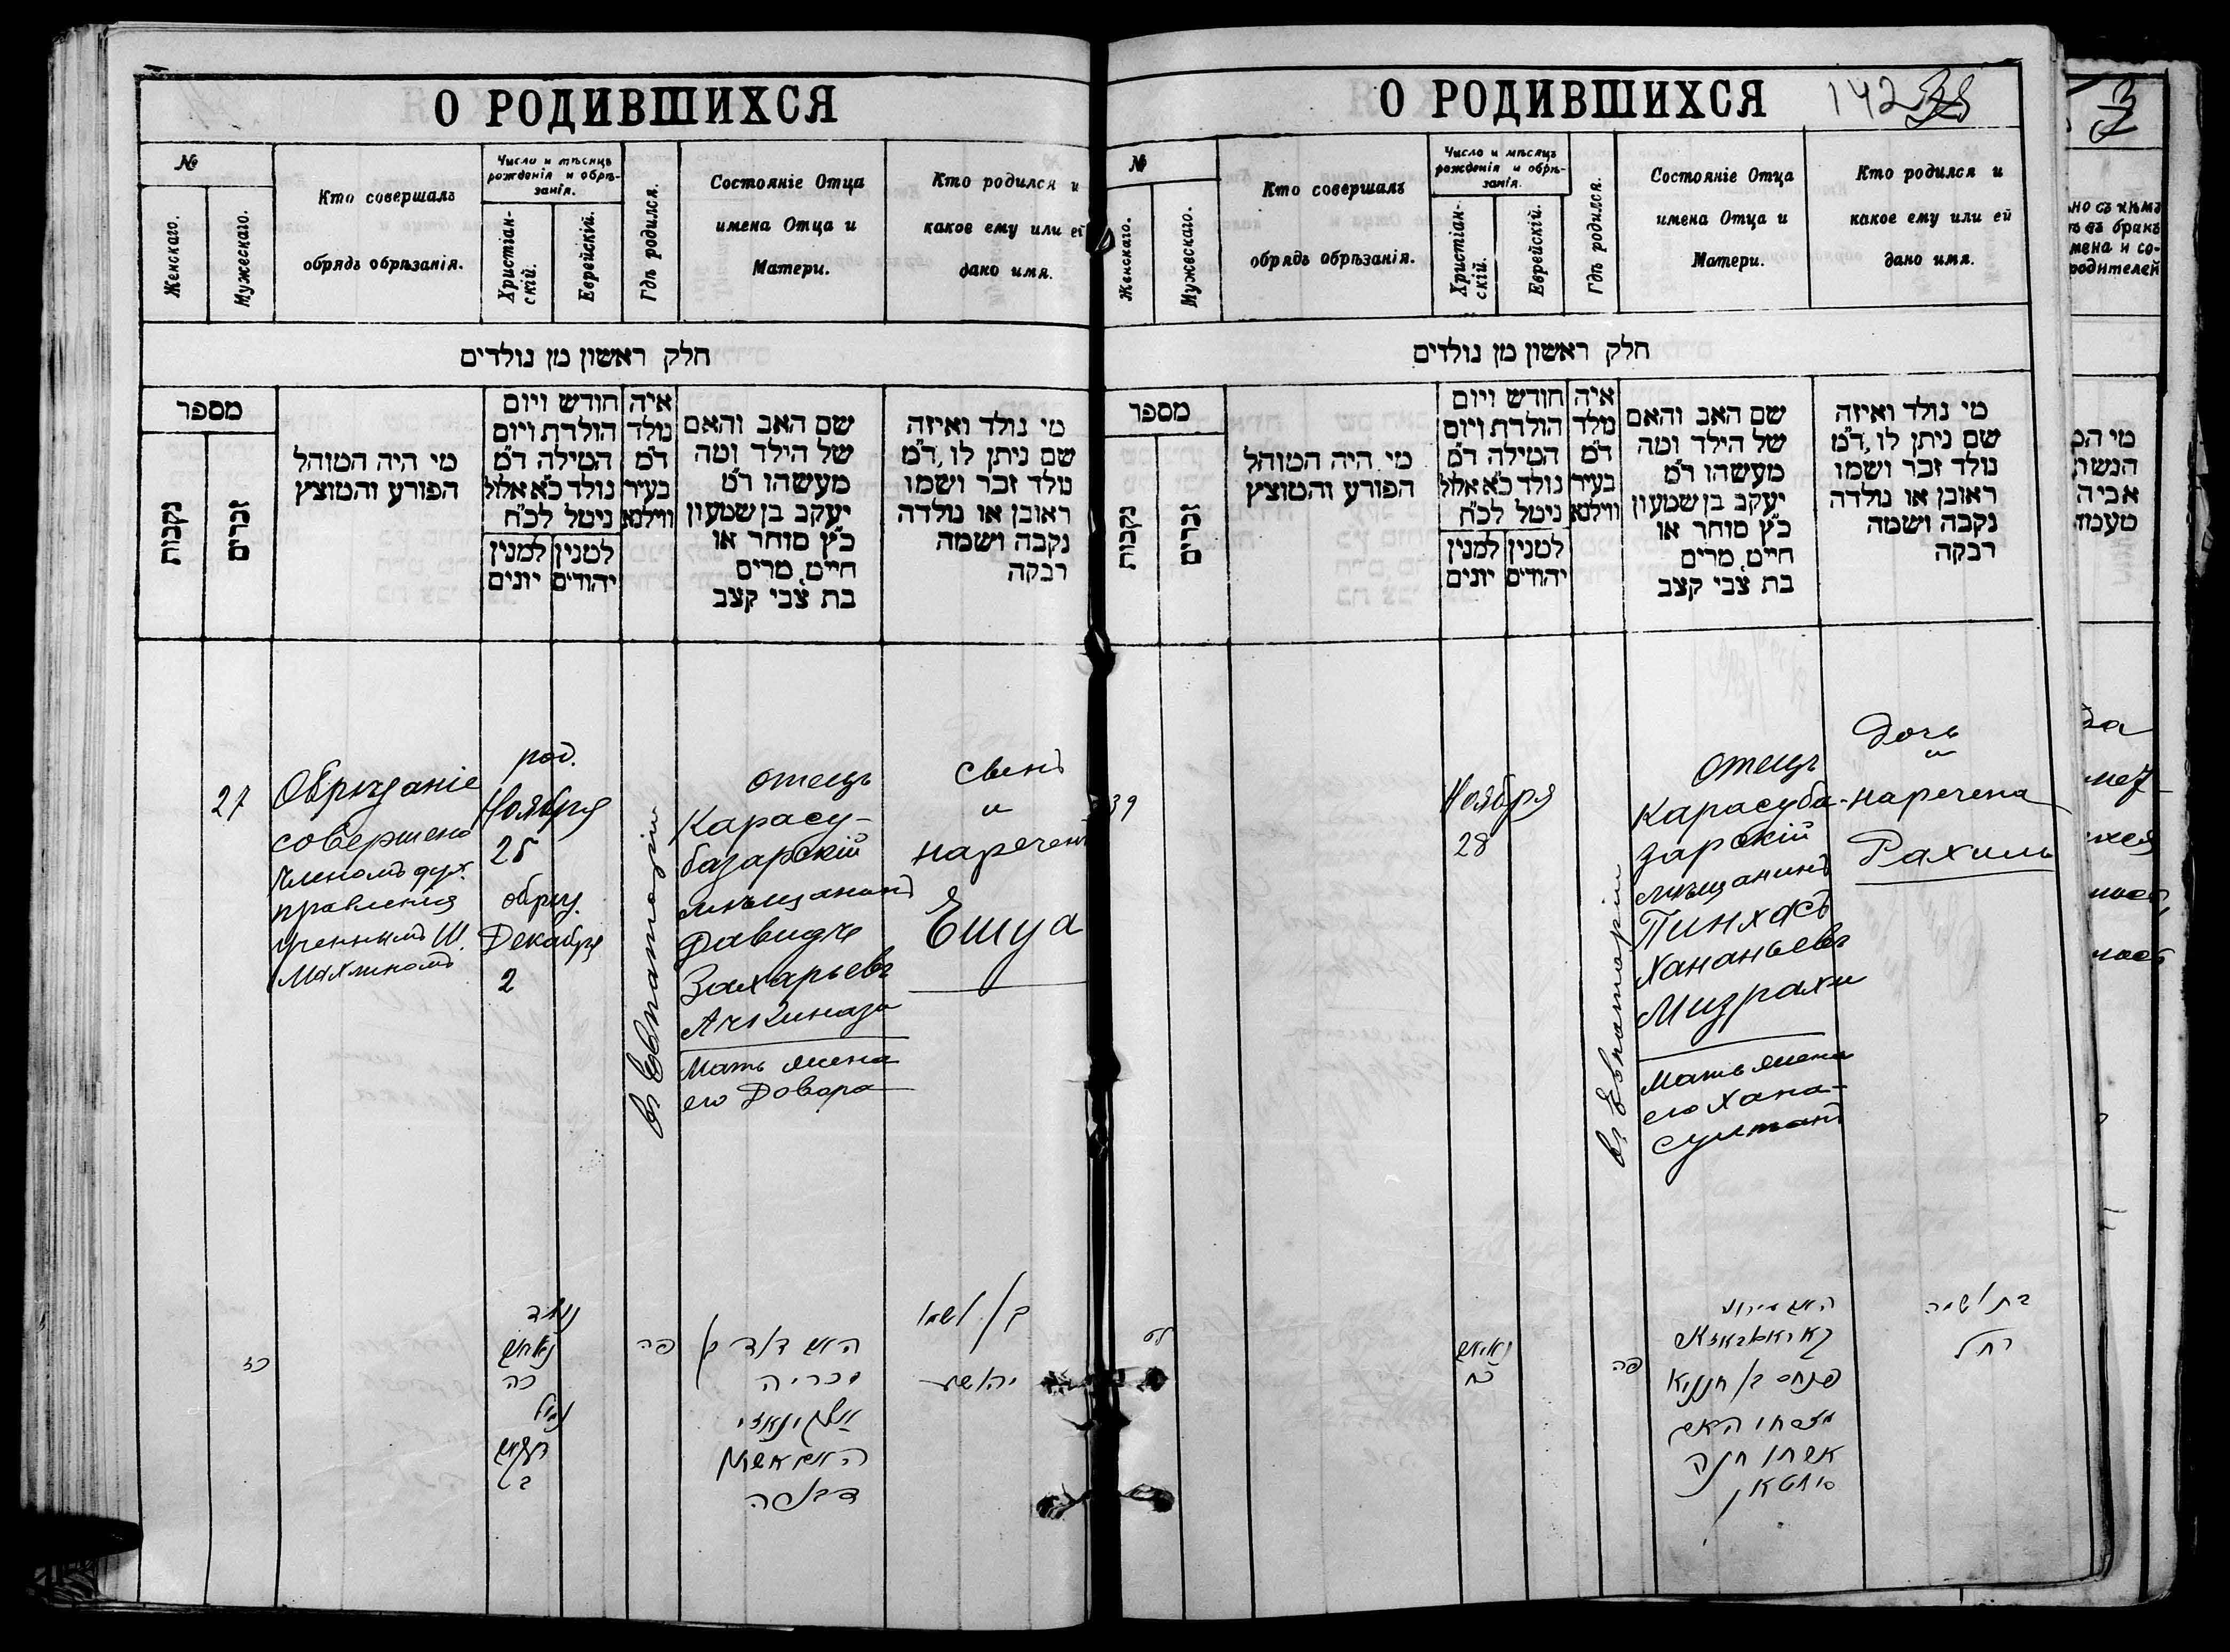 О РОДИВШИХСЯ
№
Женскаго.
Мужескаго.
Кто совершалъ
обрядъ обрѣзанія.
Число и мѣсяцъ
рожденія и обрѣ-
занія.
Христіан-
скій.
Еврейскій.
Гдѣ родился.
Состояніе Отца
имена Отца и
Матери.
Кто родился и
какое ему или ей
дано имя.
חלק ראשון מן נולדים
מספר
נקבות
זכרים
מי היה המוהל
הפורע והמוצץ
חודש ויום
הולדת ויום
המילה ד״מ
נולד כ״א אלול
ניטל לכ״ח
למנין יונים
למנין יהודים
איה
נולד
ד״מ
בעיר
ווילנא
שם האב והאם
של הילד ומה
מעשהו ד״מ
יעקב בן שמעון
כ״ץ סוחר או
חייט, מרים
בת צבי קצב
מי נולד ואיזה
שם ניתן לו, ד״מ
נולד זכר ושמו
ראובן או נולדה
נקבה ושמה
רבקה
27
Обрѣзаніе
совершено
членомъ дух.
правленія
ученымъ Ш.
род.
Ноября
25
обрѣз.
Декабря
2
въ Евпаторіи
отецъ
Карасу-
базарскій
мѣщанинъ
Давидъ
Захарьевъ
Мать жена
его Довора
сынъ
и
нареченъ
Ешуа
כז
נולד
נאיאב
כה
נמול
ב
פה
האב דוד בן
זכריה
האם אשתו
דבורה
בן ושמו
יהושע
О РОДИВШИХСЯ
142
№
Женскаго.
Мужескаго.
Кто совершалъ
обрядъ обрѣзанія.
Число и мѣсяцъ
рожденія и обрѣ-
занія.
Христіан-
скій.
Еврейскій.
Гдѣ родился.
Состояніе Отца
имена Отца и
Матери.
Кто родился и
какое ему или ей
дано имя.
חלק ראשון מן נולדים
מספר
נקבות
זכרים
מי היה המוהל
הפורע והמוצץ
חודש ויום
הולדת ויום
המילה ד״מ
נולד כ״א אלול
ניטל לכ״ח
למנין יונים
למנין יהודים
איה
נולד
ד״מ
בעיר
ווילנא
שם האב והאם
של הילד ומה
מעשהו ד״מ
יעקב בן שמעון
כ״ץ סוחר או
חייט, מרים
בת צבי קצב
מי נולד ואיזה
שם ניתן לו, ד״מ
נולד זכר ושמו
ראובן או נולדה
נקבה ושמה
רבקה
39
Ноября
28
въ Евпаторіи
отецъ
Карасуба-
зарскій
мѣщанинъ
Пинхасъ
Хананьевъ
Мизрахи
Мать жена
его Хана-
султанъ
Дочь
и
наречена
Рахиль
לט
כח
פה
פנחס בן חנניא
מזרחי האם
אשתו חנה
סולטאן
בת ושמה
רחל